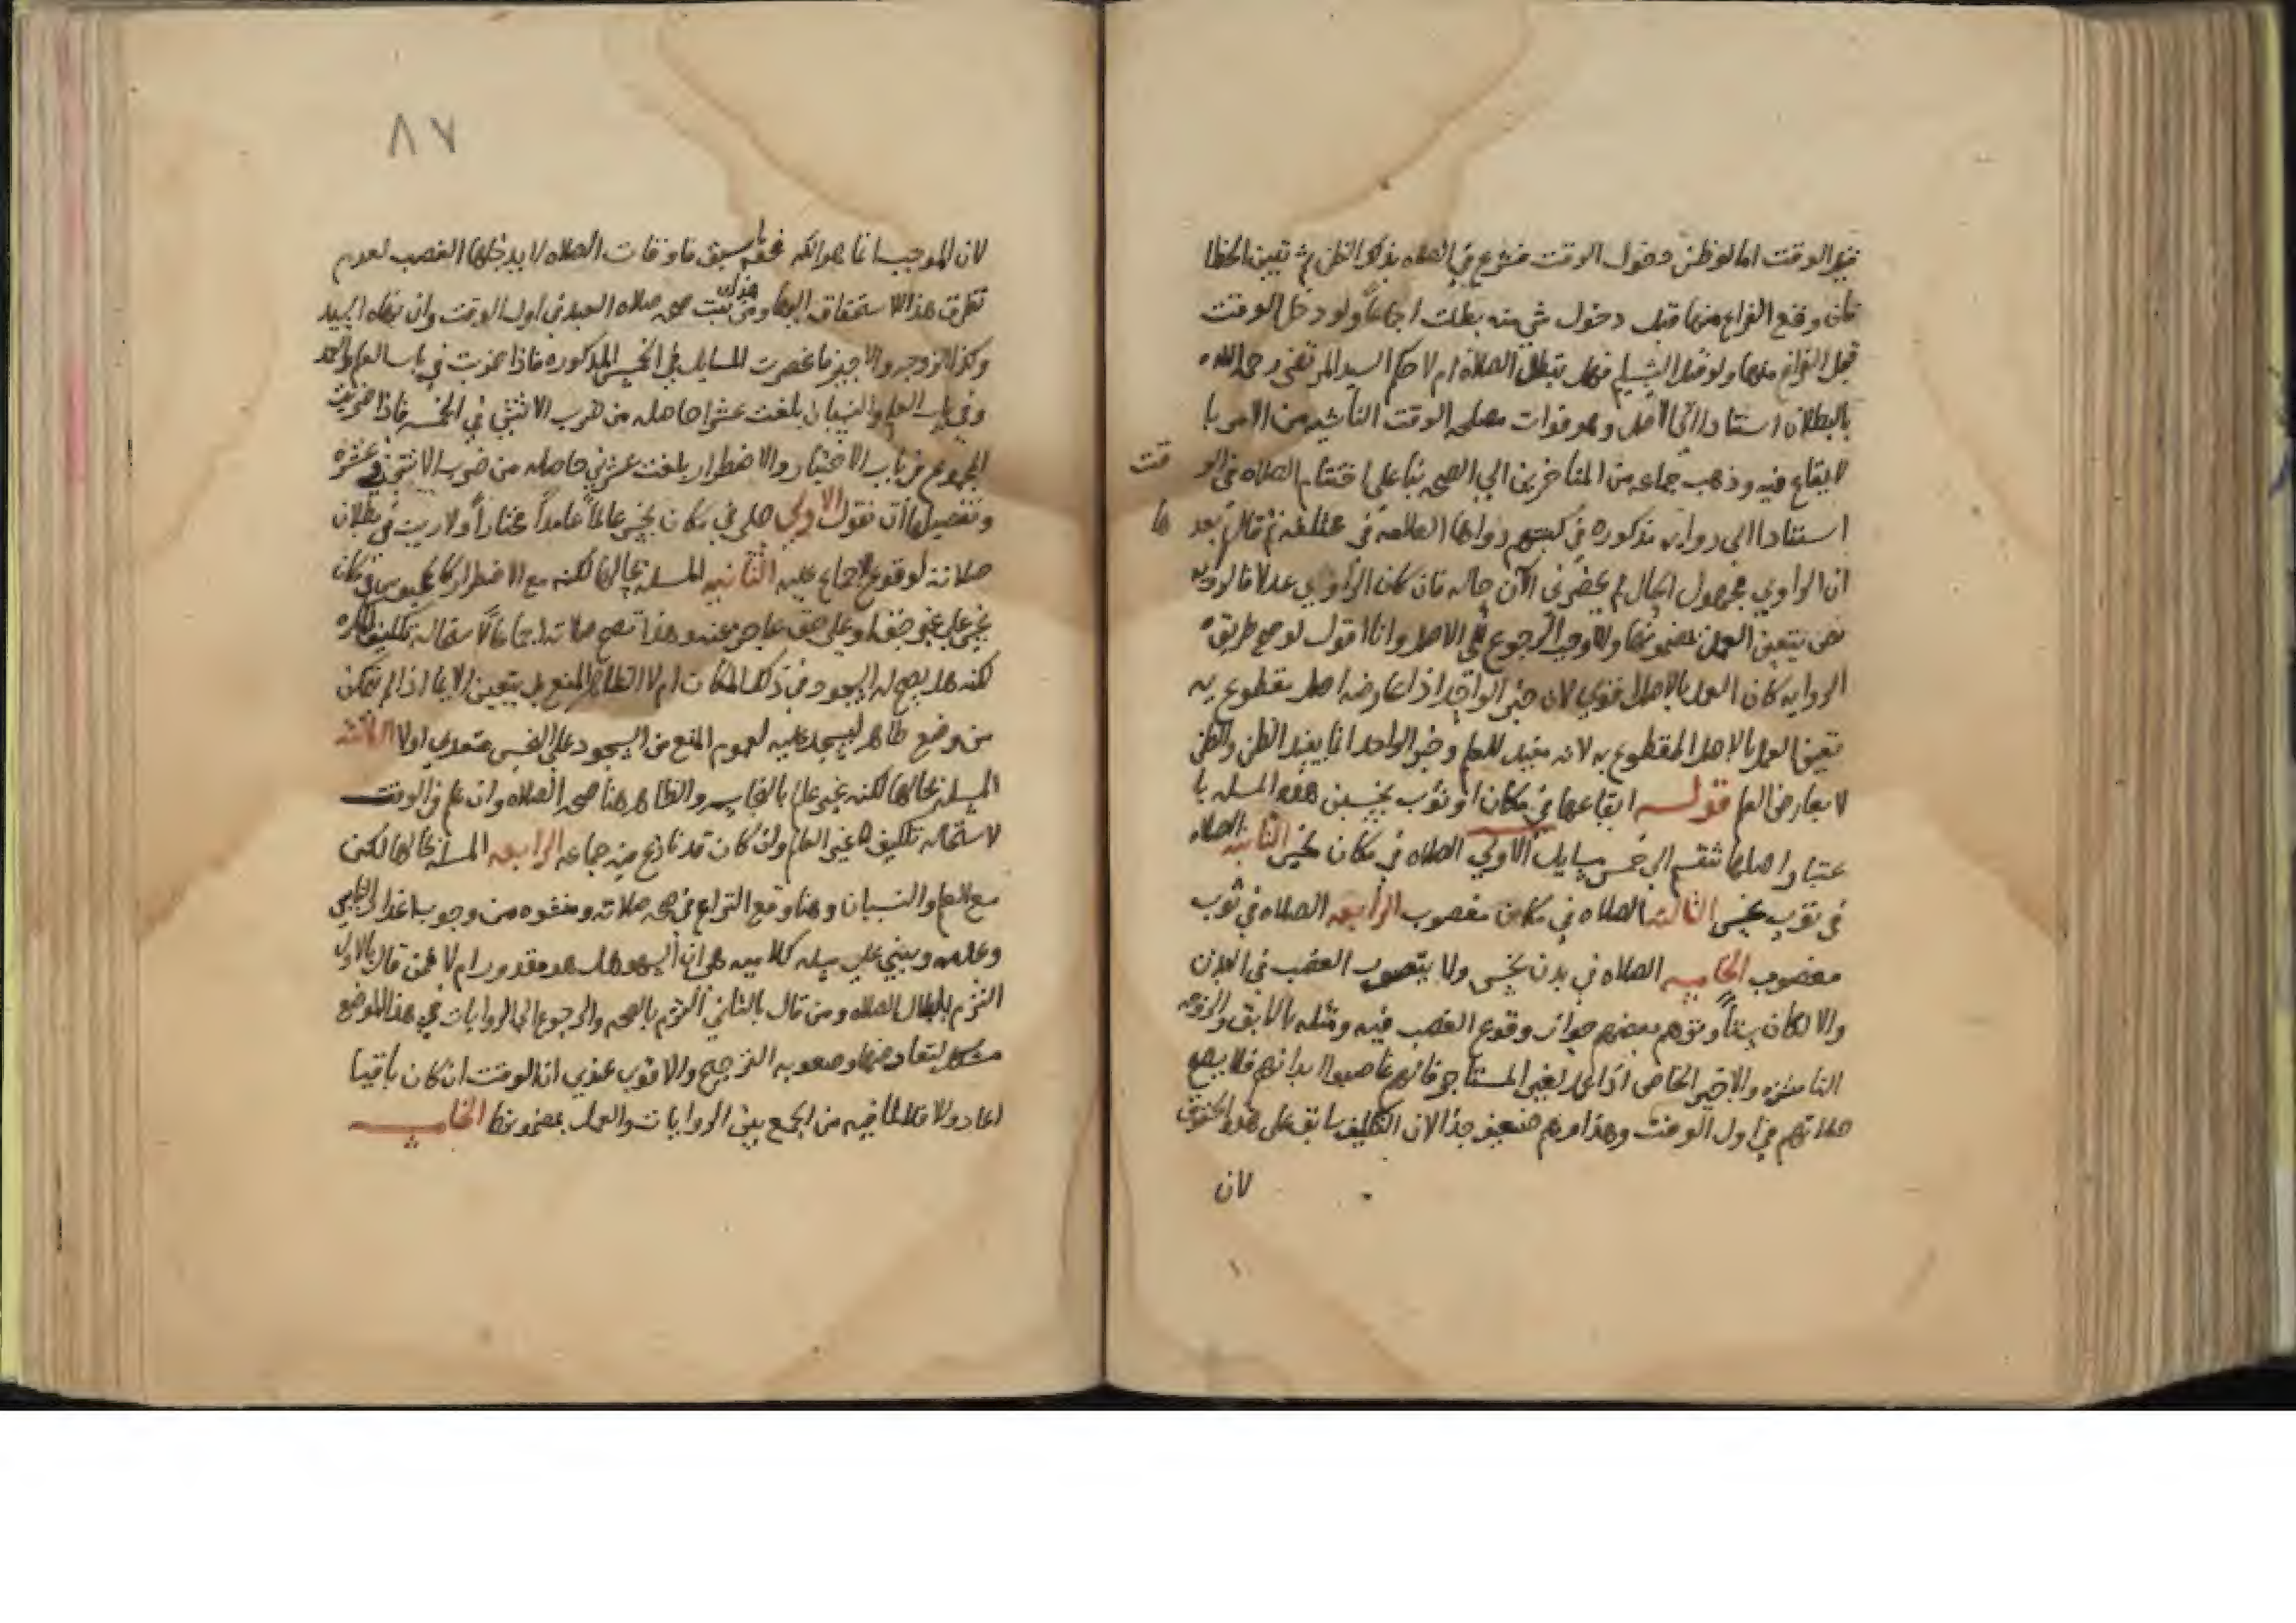 غير الوقت اما لو ظن دخول الوقت فشرع في الصلاه بذلك الظن ثم تبين الخطا
فان وقع الفراغ منها قبل دخول شي منه بطلت اجماعاً ولو دخل الوقت
قبل الفراغ منها ولو قبل التسليم فهل تبطل الصلاة ام لا حكم السيد المرتضى رحمه الله
بالبطلان استنادا الى الاصل وهو فوات مصلحه الوقت الناشيه من الامر با
لايقاع فيه وذهب جماعه من المتاخرين الي الصحه بنا على اختتام الصلاه في الو قت
استنادا الي روايه مذكوره في كتبهم رواها العلامه في مختلفه ثم قال بعد ها
ان الراوي مجهول الحال لم يحضرني الآن حاله فان كان الراوي عدلا فالروايه
نص يتعين العمل بمضمونها والا وجب الرجوع الى الاصل وانا اقول لو صح طريق
الروايه كان العمل بالاصل قوي لان خبر الواحد اذا عارضه اصل مقطوع به
تعين العمل بالاصل المقطوع به لانه مفيد للعلم وخبر الواحد انما يفيد الظن والظن
لا يعارض العلم قولـــه ايقاعها في مكان او ثوب نجسين هذه المسله با
عتبار اصلها تنقسم الى خمس مسايل الاولي الصلاه في مكان نجس الثانيه الصلاه
في ثوب نجس الثالثه الصلاه في مكان مغصوب الرابعه الصلاه في ثوب
مغصوب الخامسه الصلاه في بدن نجس ولا يتصور الغصب في البدن
والا لكان وتوهم بعضهم جواز وقوع الغصب فيه ومثله بالآبق والزوجه
الناشزه والاجير الخاص اذا عمل لغير المستاجر فانهم غاصبوا ابدانهم فلا يصح
صلاتهم في اول الوقت وهذا وهم ضعيف جدا لان التكليف سابق على هذه الحقوق
لان
٨٧
لان الموجب انما هو الكه سبق فاوقات الصلاه لا يدخلها الغصب لعدم
تطرق هذا الاستحقاق اليها ومن هذا تثبت صحه صلاه العبد في اول الوقت وان نهاه السيد
وكذا الزوجه والاجير فانحصرت المسايل في الخمس المذكوره فاذا ضربت في باب العلم والعمد
وفي باب العلم والنسيان بلغت عشرا حاصله من ضرب الاثنين في الخمسه فاذا ضربت
المجموع في باب الاختيار والاضطرار بلغت عشرين حاصله من ضرب الاثنين في عشره
وتفصيلها ان نقول الاولي صلى في مكان نجس عالماً عامداً مختاراً ولا ريب في بطلان
صلاته لوقوع الاجماع عليه الثانيه المسله بحالها لكنه مع الاضطرار كالمحبوس في مكان
نجس على غير حق او على حق عاجز عنه وهذا تصح صلاته اجماعا لاستحاله تكليف المكره
لكنه هل يصح له السجود في ذلك المكان ام لا الظاهر المنع بل يتعين الايما اذا لم يتمكن
من وضع طاهر ليسجد عليه لعموم المنع من السجود على النجس متعدي اولا الثالثه
المسله بحالها لكنه غير عالم بالنجاسه والظاهر هنا صحه الصلاه وان علم في الوقت
لاستحاله تكليف غير العالم وان كان قد نازع فيه جماعه الرابعه المسله بحالها لكن
مع العلم والنسيان وهنا وقع النزاع في صحه صلاته ومنشوه من وجوب اعذار الناسي
وعدمه ويبني على مسله كلاميه هي ان السهو هل هو مقدور ام لا فمن قال بالاول
التزم بابطال الصلاه ومن قال بالثاني التزم بالصحه والرجوع الى الروايات في هذا الموضع
مشكل لتعارضها وصعوبه الترجيح والاقوي عندي ان الوقت ان كان باقيا
اعاد والا فلا لما فيه من الجمع بين الروايات والعمل بمضمونها الخامسه